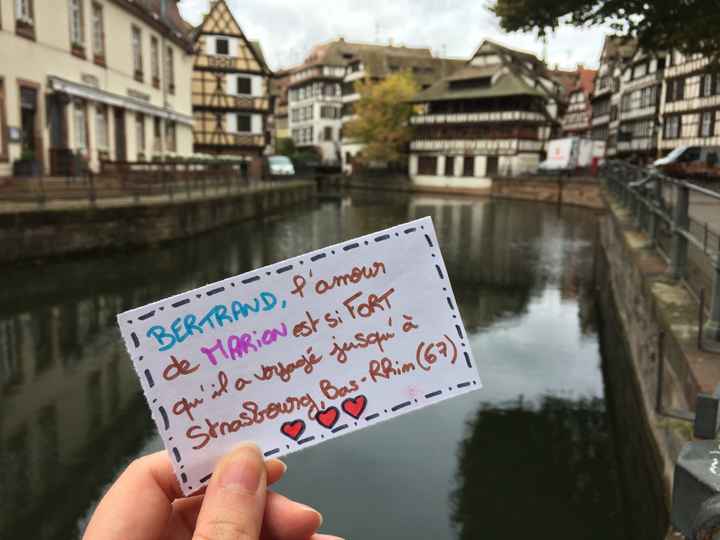 BERTRAND, l'amour
de MARION est si FORT
qu'il a voyagé jusqu'à
Strasbourg, Bas-Rhin (67)